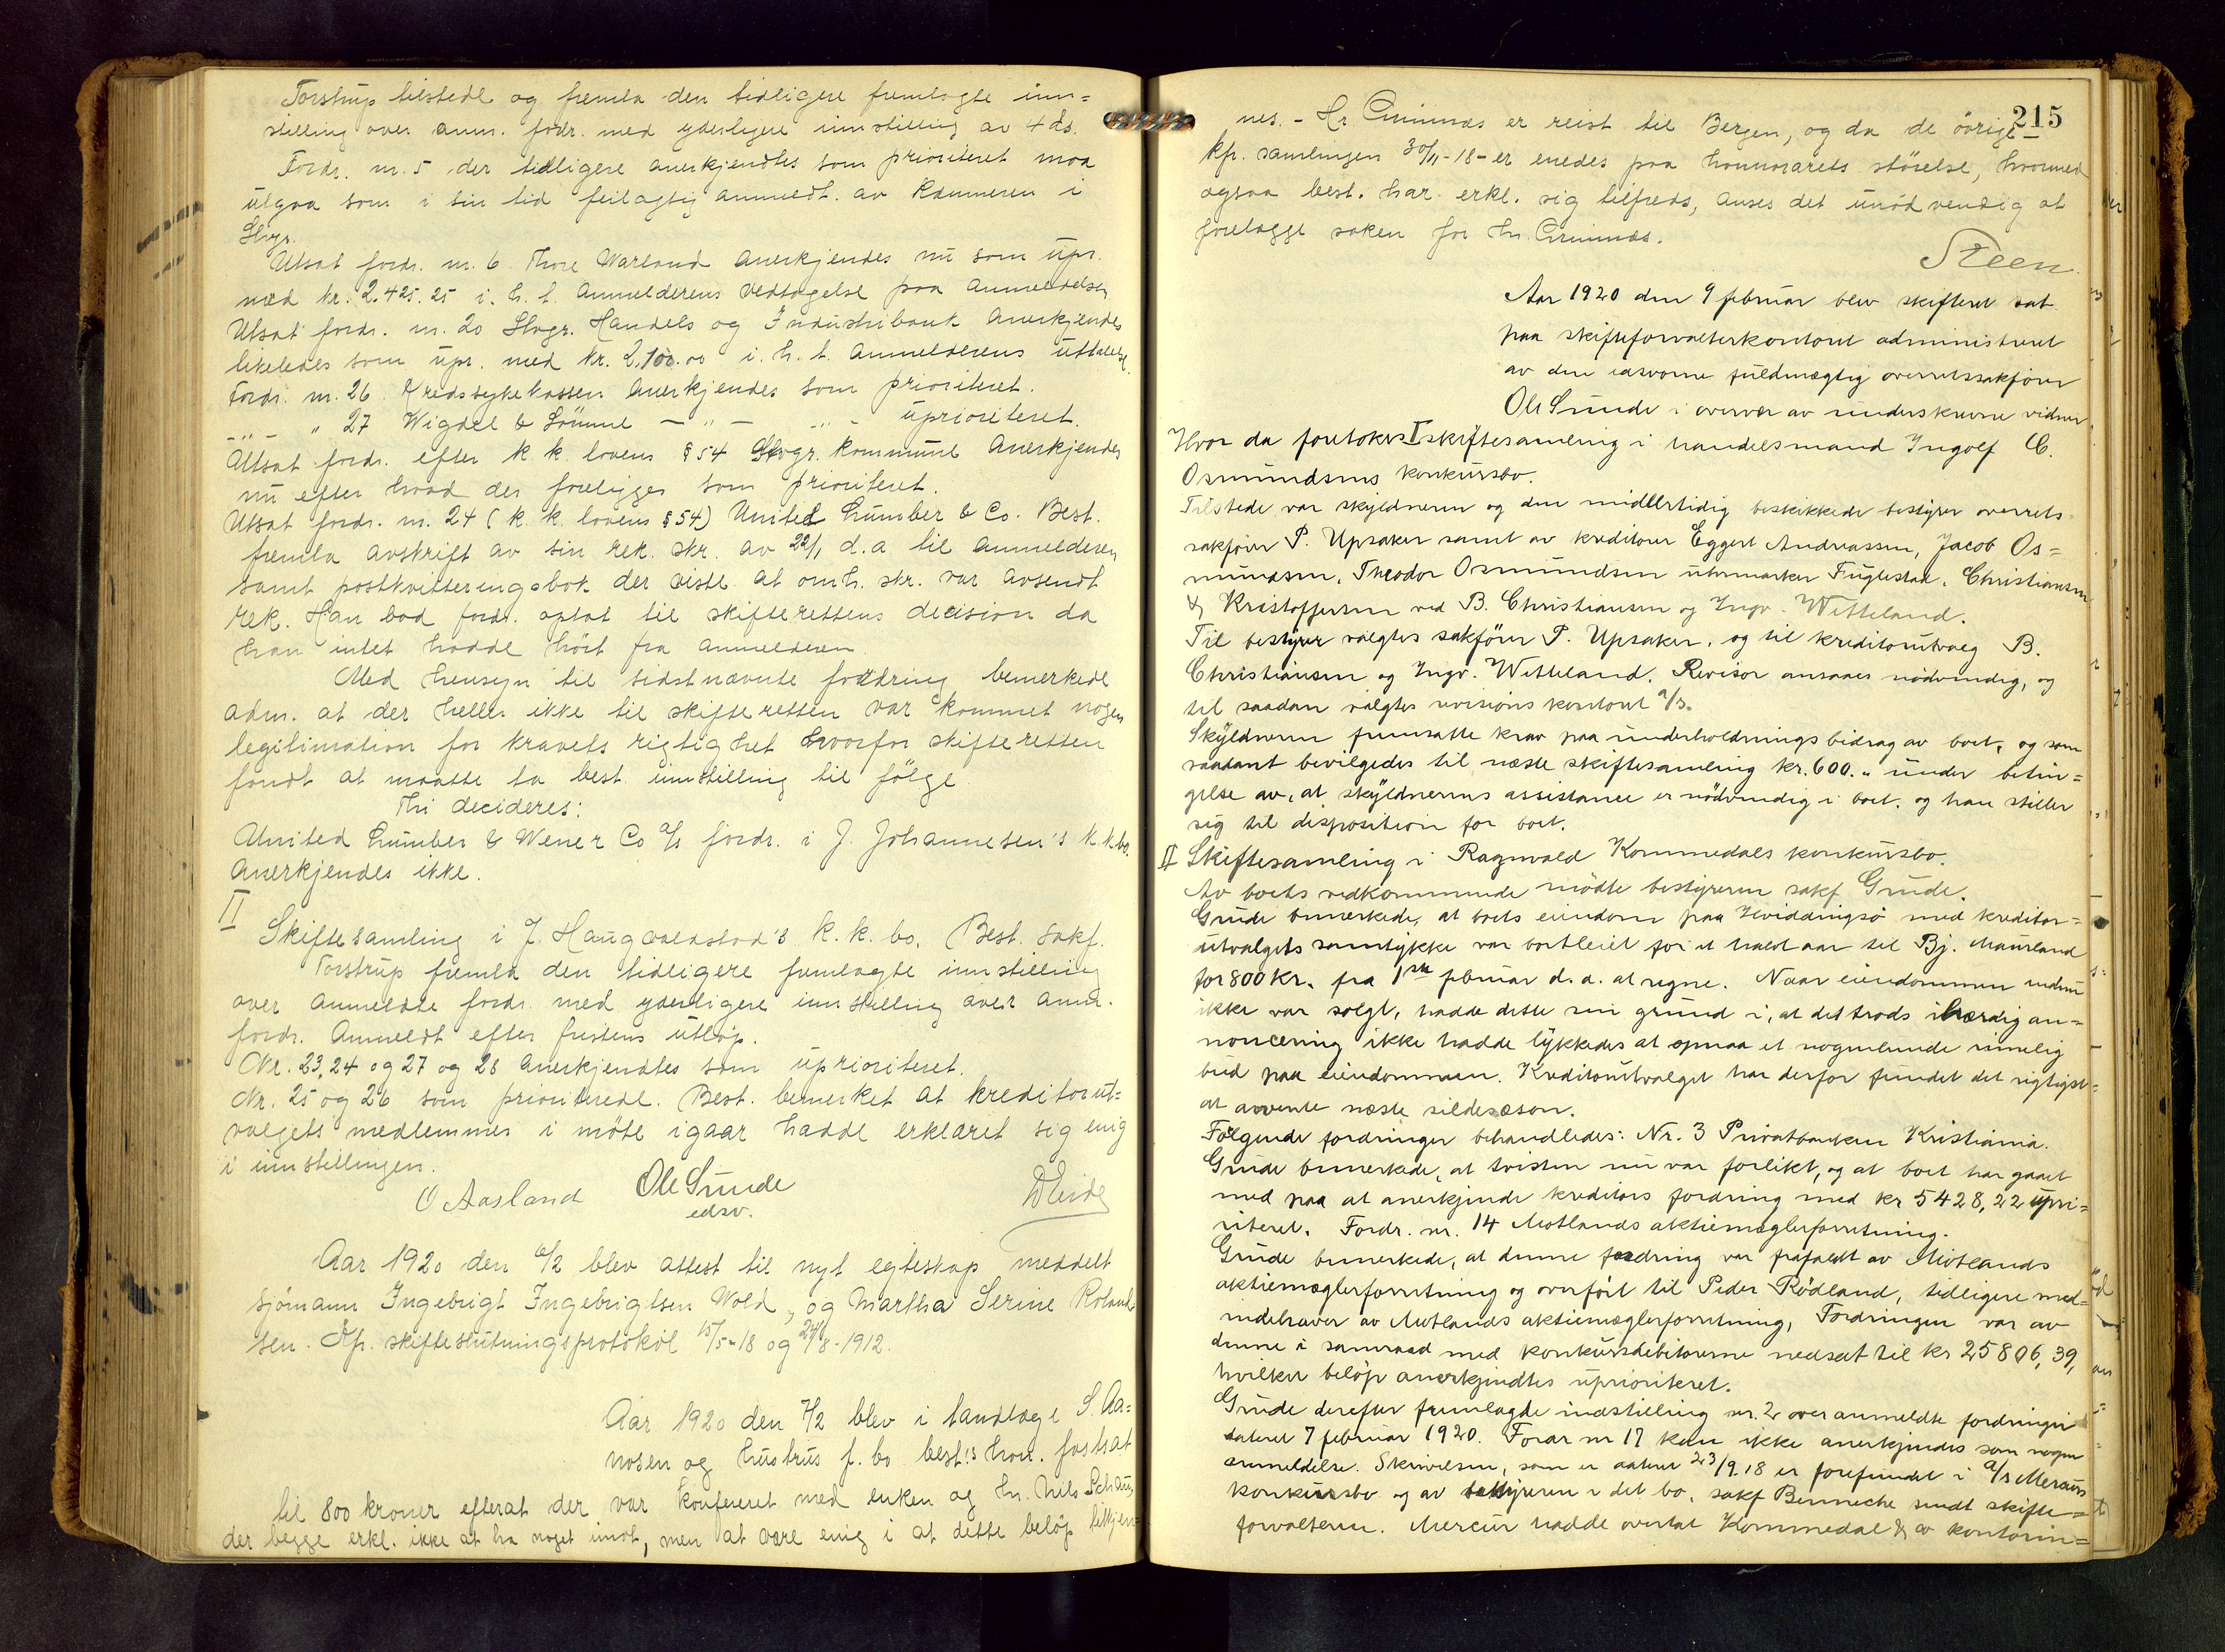 Torstrup tilstede og fremla den tidligere fremlagte inn=
stilling over anm. fordr. med yderligere innstilling av 4 ds.
Fordr. nr. 5 der tidligere anerkjendtes som prioriteret maa
utgaa som i sin tid feilagtig anmeldt av Kæmneren i
Stvgr.
Utsat fordr. nr. 6. Thore Warland anerkjendes nu som upr.
med kr. 2.425.25 i. h. t. anmelderens vedtagelse paa anmeldelsen
Utsat fordr. nr. 20 Stvgr. Handels og Industribank anerkjendes
likeledes som upr. med kr. 2.100.00 i. h. t. anmelderens uttalelse.
Fordr. nr. 26 Kredssykekassen anerkjendes som prioriteret.
- " - " 27 Wigdel & Sömme - " - - " - uprioriteret.
Utsat fordr. efter k. k. lovens § 54 Stvgr. kommune anerkjendes
nu efter hvad der foreligger som prioriteret.
Utsat fordr. nr. 24 (k. k. lovens § 54) United Lumber & Co. Best.
fremla avskrift av sin rek. skr. av 22/1 d. a til anmelderen
samt postkvitteringsbok der viste at omh. skr. var avsendt
rek. Han bad fordr. optat til skifterettens decision da
han intet hadde hört fra anmelderen.
Med hensyn til sidstnævnte fordring bemerkede
adm. at der heller ikke til skifteretten var kommet nogen
legitimation for kravets rigtighet hvorfor skifteretten
fandt at maatte ta best. innstilling til fölge
Thi decideres:
United Lumber & Wener Co A/s fordr. i J. Johannesen's k.k.bo.
anerkjendes ikke.
II
Skiftesamling i J. Haugvaldstad's k. k. bo. Best. sakf.
Torstrup fremla den tidligere fremlagte innstilling
over anmeldte fordr. med yderligere innstilling over anm.
fordr. anmeldt efter fristens utlöp.
Nr. 23, 24 og 27 og 28 anerkjendtes som uprioriteret.
Nr. 25 og 26 som prioriterede. Best. bemerket at kreditorut=
valgets medlemmer i möte igaar hadde erklæret sig enig
i innstillingen.
O Aasland Ole Sunde
edsv.
Aar 1920 den 6/2 blev attest til nyt egteskap meddelt
sjömann Ingebrigt Ingebrigtsen Wold, og Martha Serine Roland
sen. Kfr. skifteslutningsprotokol 15/5-18 og 24/8-1912.
Aar 1920 den 7/2 blev i landlæge S. Aa=
nosen og hustrus f. bo best's hon. fastsat
til 800 kroner efterat der var konfereret med enken og hr. Nils Schau,
der begge erkl. ikke at ha noget imot, men at være enig i at dette belöp tilkjen=
215
nes. - Hr Grimnæs er reist til Bergen, og da de övrige -
kfr. samlingen 30/11-18 - er enedes paa honnorarets störelse, hvormed
ogsaa best. har erkl. sig tilfreds, anses det unödvendig at
forelægge saken for hr. Grimnæs.
Steen
Aar 1920 den 9 februar blev skifteret sat
paa skifteforvalterkontoret administreret
av den edsvorne fuldmægtig overretssakförer
Ole Sunde i overvær av underskrevne vidner
Hvor da foretokes I skiftesamling i handelsmand Ingolf C.
Osmundsens konkursbo.
Tilstede var skyldneren og den midlertidig beskikkede bestyrer overrets
sakförer P. Upsaker samt av kreditorer Eggert Andreassen, Jacob Os=
mundsen, Theodor Osmundsen utenmarken Fuglestad, Christiansen
& Kristoffersen ved B. Christiansen og Ingv. Wetteland.
Til bestyrer valgtes sakförer P. Upsaker, og til kreditorutvalg B.
Christiansen og Ingv. Wetteland. Revisor ansaaes nödvendig, og
til saadan valgtes revisions kontoret A/S.
Skyldneren fremsatte krav paa underholdningsbidrag av boet, og som
saadant bevilgedes til næste skiftesamling kr. 600.- under betin=
gelse av, at skyldnerens assistance er nödvendig i boet, og han stiller
sig til disposition for boet.
II Skiftesamling i Ragnvald Kommedals konkursbo.
Av boets vedkommende mödte bestyreren sakf Grude.
Grude bemerkede, at boets eiendom paa Hviddingsö med kreditor=
utvalgets samtykke var bortleiet for et halvt aar til Bj. Maurland
for 800 kr. fra 1ste februar d. a. at regne. Naar eiendommen endnu
ikke var solgt, hadde dette sin grund i, at det trods ihærdig an=
noncering ikke hadde lykkedes at opnaa et nogenlunde rimelig
bud paa eiendommen. Kreditorutvalget har derfor fundet det rigtigst=
at avvente næste sildesæson.
Følgende fordringer behandledes: Nr. 3 Privatbanken Kristiania.
Grude bemerkede, at tvisten nu var forlikt, og at boet har gaaet
med paa at anerkjende kreditors fordring med kr 5428,22 uprio=
riteret. Fordr. nr. 14 Motlands aktiemæglerforretning.
Grude bemerkede, at denne fordring var frafaldt av Motlands
aktiemæglerforretning og overfört til Peder Rödland, tidligere med=
indehaver av Motlands aktiemæglerforretning. Fordringen var av
denne i samraad med konkursdebitorerne nedsat til kr 25806,39,
hvilket belöp anerkjendtes uprioriteret.
Grude derefter fremlagde indstilling nr. 2 over anmeldte fordringer
dateret 7 februar 1920. Fordr nr 17 kan ikke anerkjendes som nogen
anmeldelse. Skrivelsen, som er dateret 23/9.18 er forefundet i A/s Mercurs
konkursbo og av bestyreren i det bo, sakf Benneche sendt skifte=
forvalteren. Mercur hadde overtat Kommedal & co kontorin=